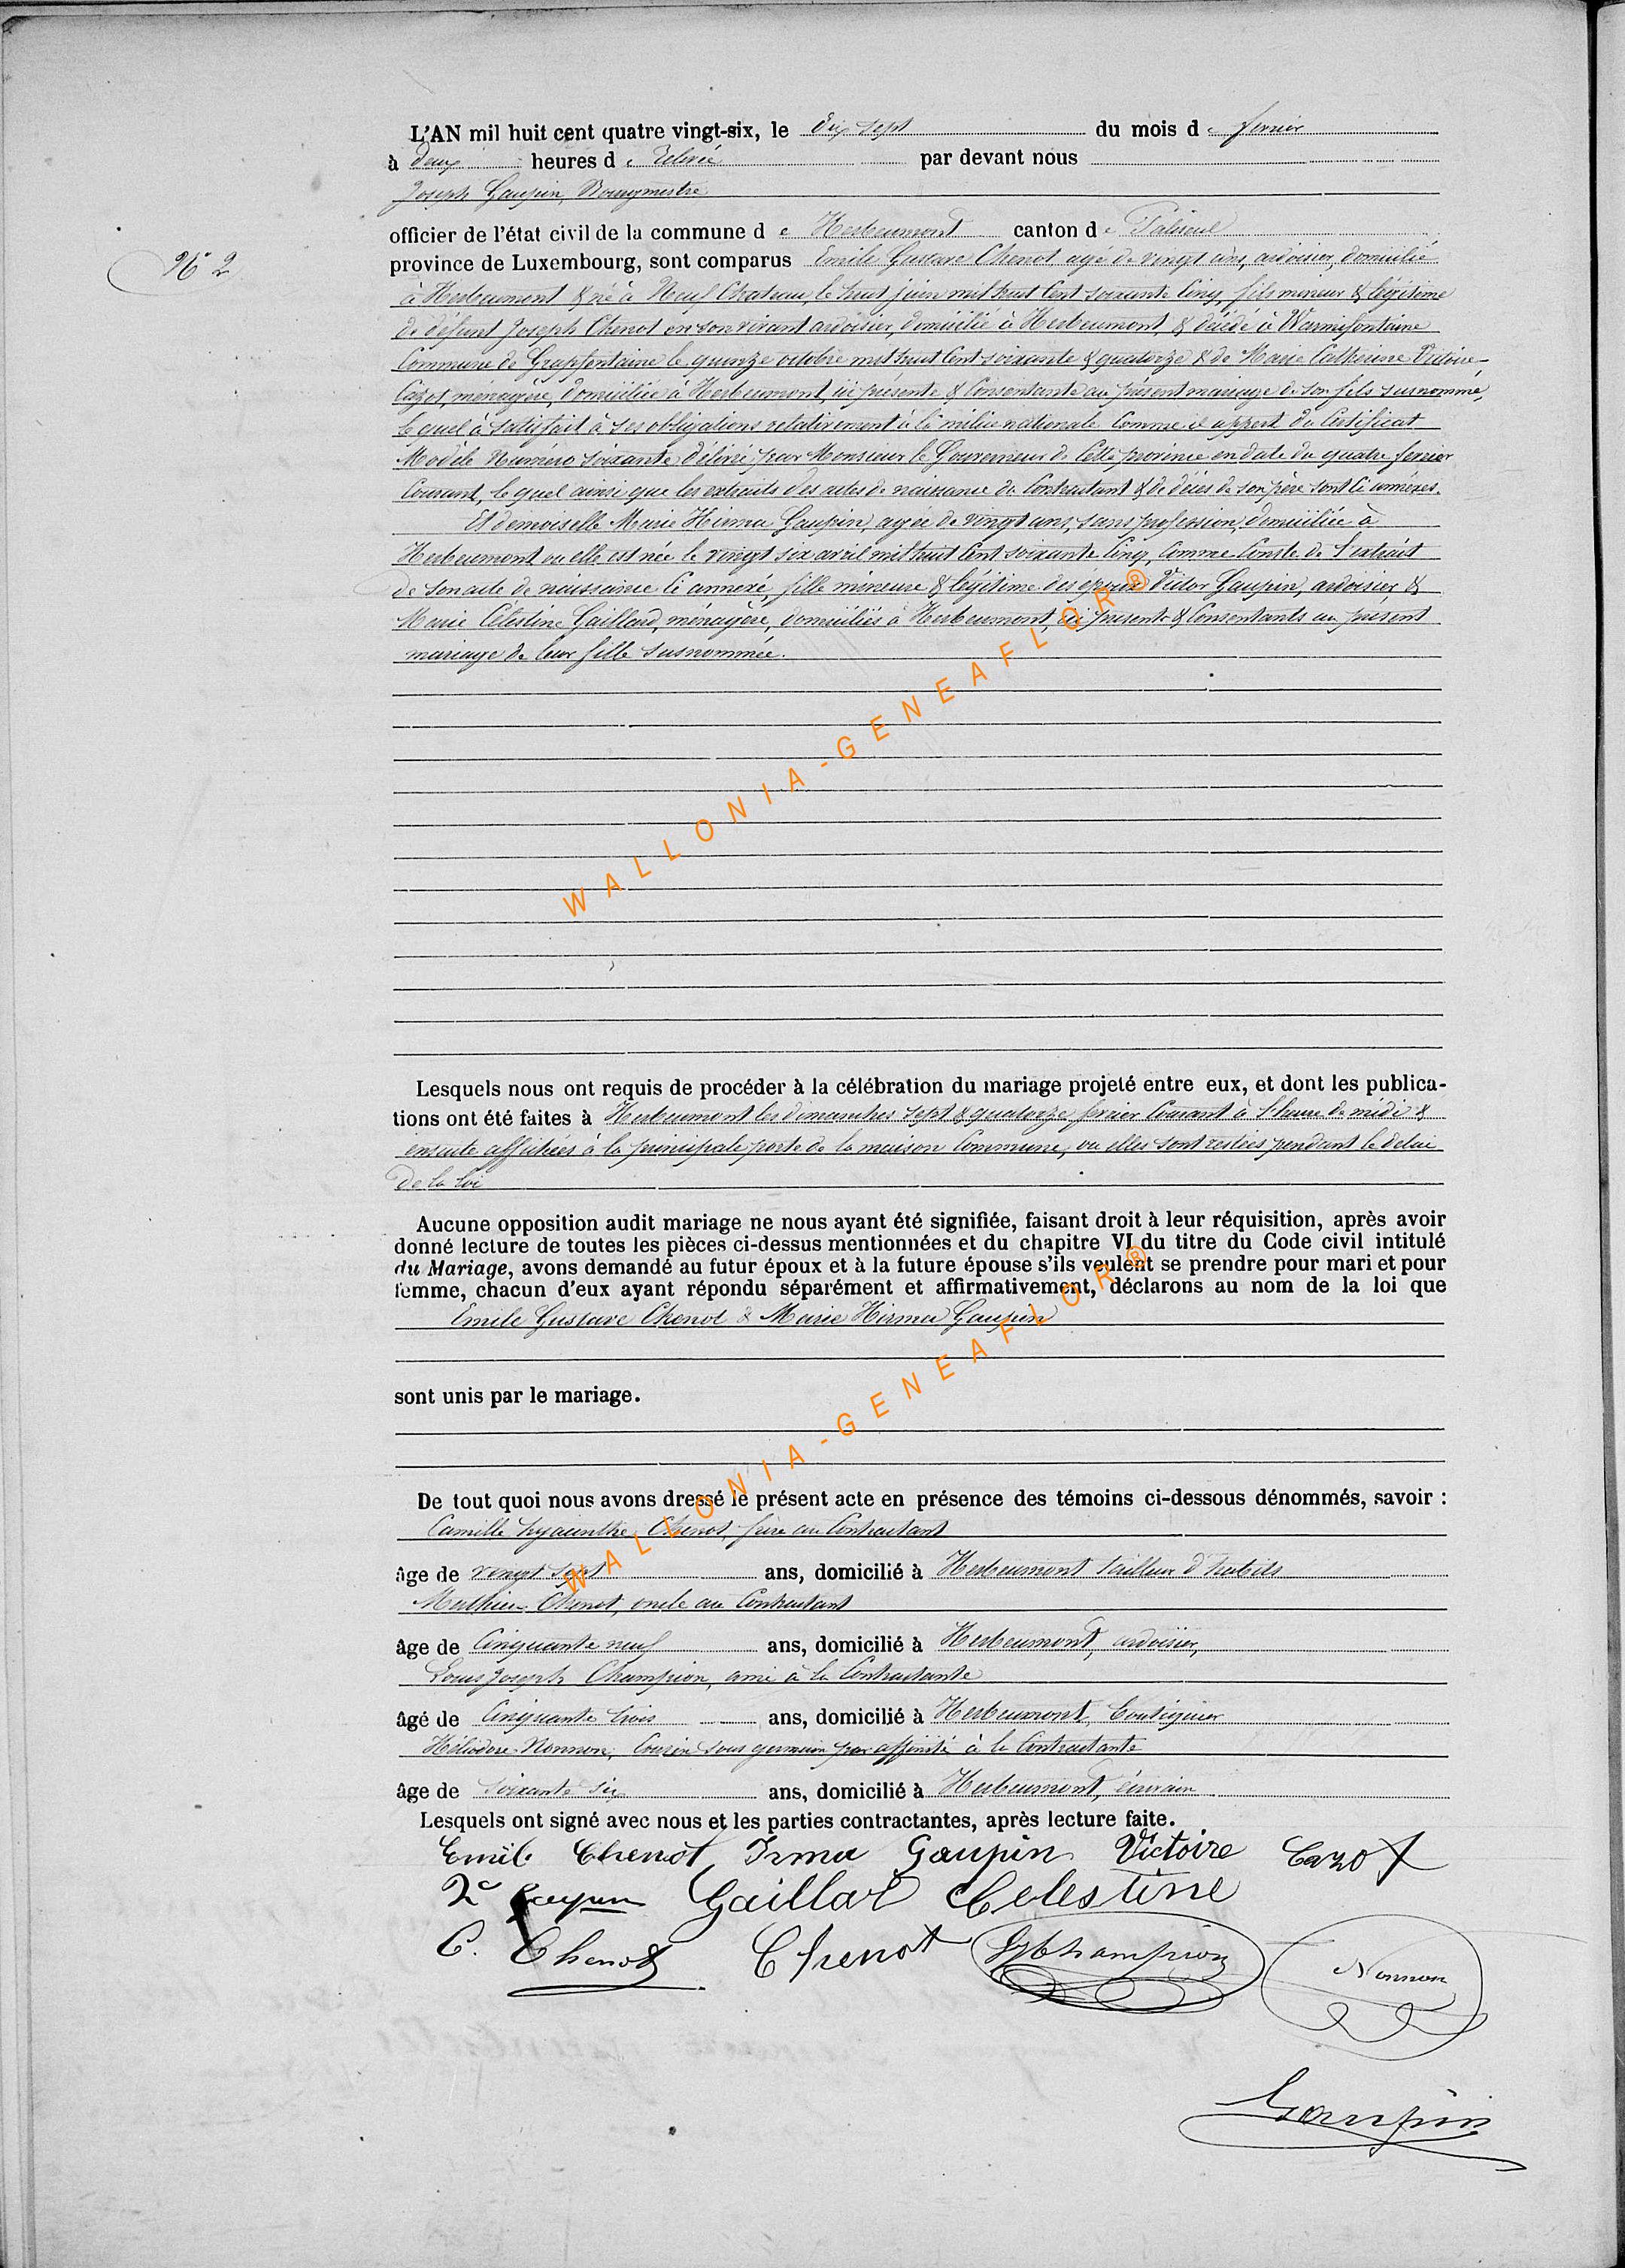 L'AN mil huit cent quatre vingt-six, le dix sept du mois de fevrier
à deux heures de Relevée par devant nous
Joseph Gaupin, Bourgmestre
officier de l'état civil de la commune de Herbeumont canton de Paliseul
N° 2
province de Luxembourg, sont comparus Emile Gustave Chenot, agé de vingt ans, ardoisier, domicilié
à Herbeumont & né à Neuf Chateau, le huit juin mil huit cent soixante cinq, fils mineur & légitime
de défunt Joseph Chenot en son vivant ardoisier, domicilié à Herbeumont, & décédé à Warmifontaine
Commune de Grapfontaine le quinze octobre mil huit cent soixante & quatorze & de Marie Catherine Victoire
Cazot, ménagère, domiciliée à Herbeumont, ici présente & Consentante au présent mariage de son fils susnommé,
le quel à satisfait à ses obligations relativement à la milice nationale Comme il appert du Certificat
Modèle Numéro soixante délivré par Monsieur le Gouverneur de Cette province en date du quatre fevrier
Courant, le quel ainsi que les extraits des actes de naissance du Contractant & de décès de son père sont ci annexés.
Et demoiselle Marie Hirma Gaupin, agée de vingt ans, sans profession, domiciliée à
Herbeumont ou elle est née le vingt six avril mil huit cent soixante cinq, Comme Conste de l'extrait
de son acte de naissance ci annexé, fille mineure & légitime des époux Victor Gaupin, ardoisier &
Marie Célestine Gaillard, ménagère, domiciliés à Herbeumont, ici présents & Consentants au présent
mariage de leur fille susnommée.
WALLONIA-GENEAFLOR®
Lesquels nous ont requis de procéder à la célébration du mariage projeté entre eux, et dont les publica-
tions ont été faites à Herbeumont les dimanches sept & quatorze fevrier Courant à l'heure de midi &
ensuite affichées à la principale porte de la maison Commune, ou elles sont restées pendant le délai
de la loi
Aucune opposition audit mariage ne nous ayant été signifiée, faisant droit à leur réquisition, après avoir
donné lecture de toutes les pièces ci-dessus mentionnées et du chapitre VI du titre du Code civil intitulé
du Mariage, avons demandé au futur époux et à la future épouse s'ils veulent se prendre pour mari et pour
femme, chacun d'eux ayant répondu séparément et affirmativement, déclarons au nom de la loi que
Emile Gustave Chenot & Marie Hirma Gaupin
sont unis par le mariage.
WALLONIA-GENEAFLOR®
De tout quoi nous avons dressé le présent acte en présence des témoins ci-dessous dénommés, savoir :
Camille hyacinthe Chenot, frère au Contractant
âge de vingt sept ans, domicilié à Herbeumont tailleur d'habits
Mathieu Chenot, oncle au Contractant
âge de Cinquante neuf ans, domicilié à Herbeumont, ardoisier,
Louis Joseph Champion, ami à la Contractante
âgé de Cinquante trois ans, domicilié à Herbeumont, Boutiquier
Héliodore Nonnon, Cousin sous germain par affinité à la Contractante
âge de soixante six ans, domicilié à Herbeumont, écrivain
Lesquels ont signé avec nous et les parties contractantes, après lecture faite.
Emile Chenot Irma Gaupin Victoire Cazot
Gaillard Celestine
C. Chenot Chenot Champion Nonnon
Gaupin